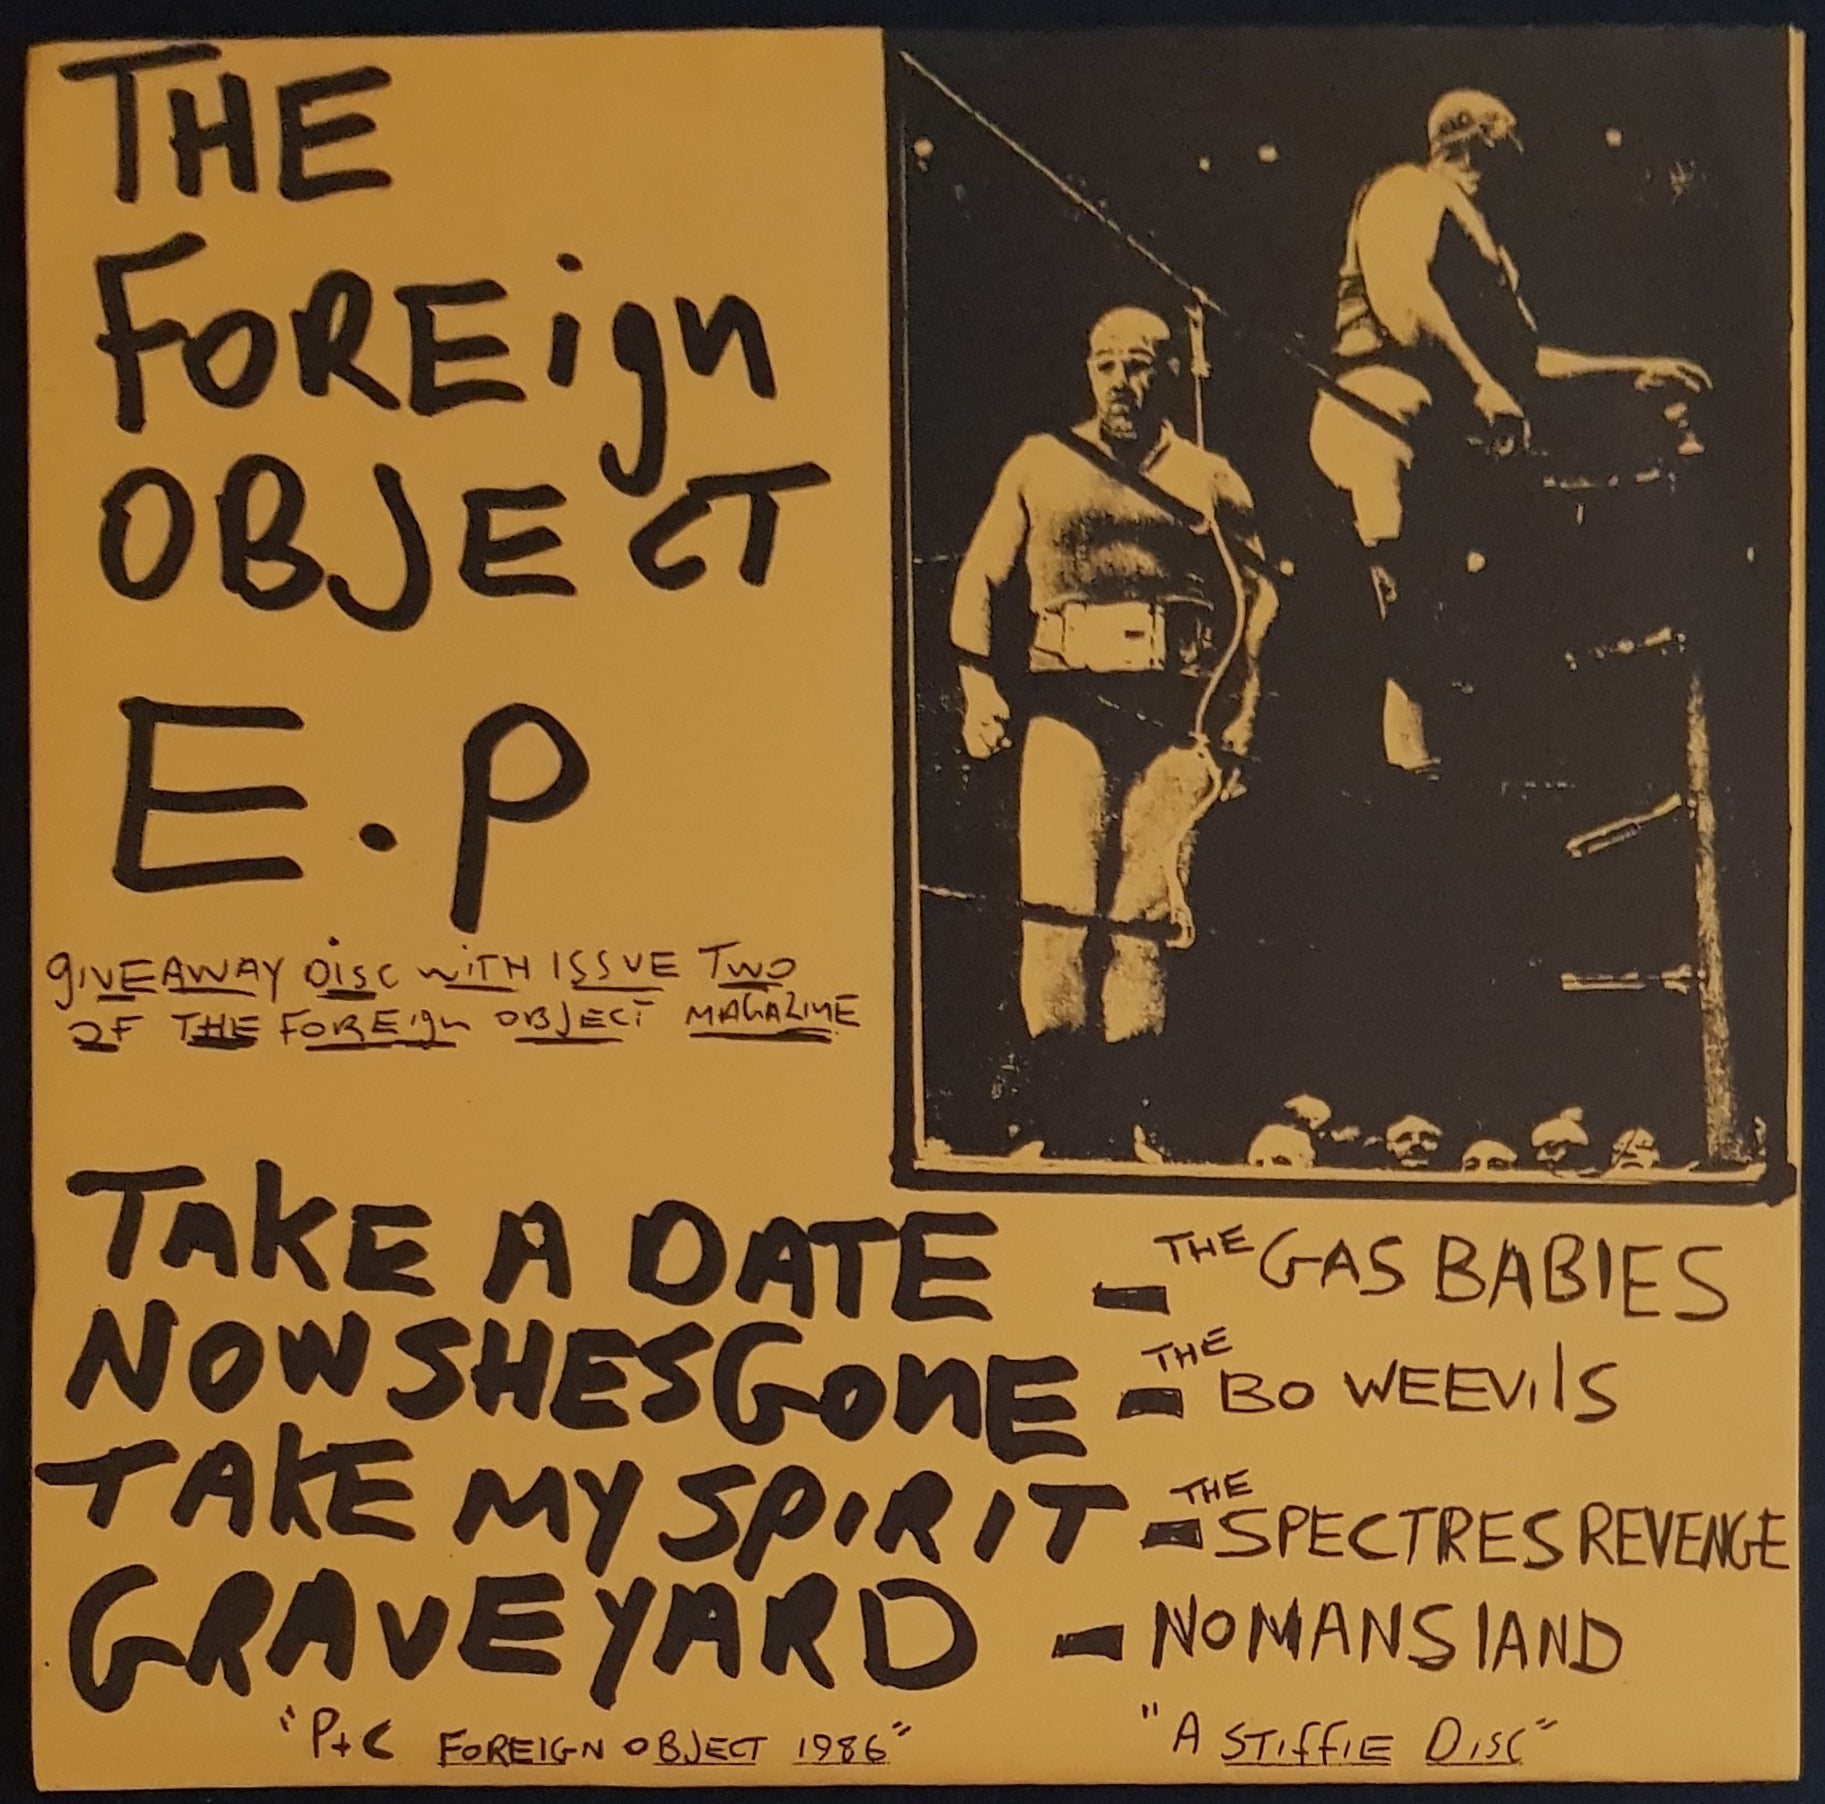 THE
FOREign
OBJECT
E.P
giVEAWAY DiSC WiTH ISSUE TWO
OF THE FOREign OBJECT MAGAZINE
TAKE A DATE - THE GAS BABIES
NOW SHES GONE - THE BO WEEVilS
TAKE MY SPIRIT - THE SPECTRES REVENGE
GRAVEYARD - NOMANS lAND
"P+C FOREIGN OBJECT 1986" "A STiffiE DiSC"